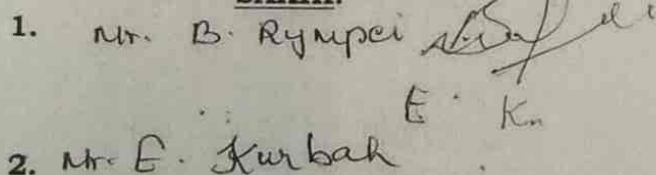 1. Mr. B. Rympei
E. K
2. Mr. E. Kurbah